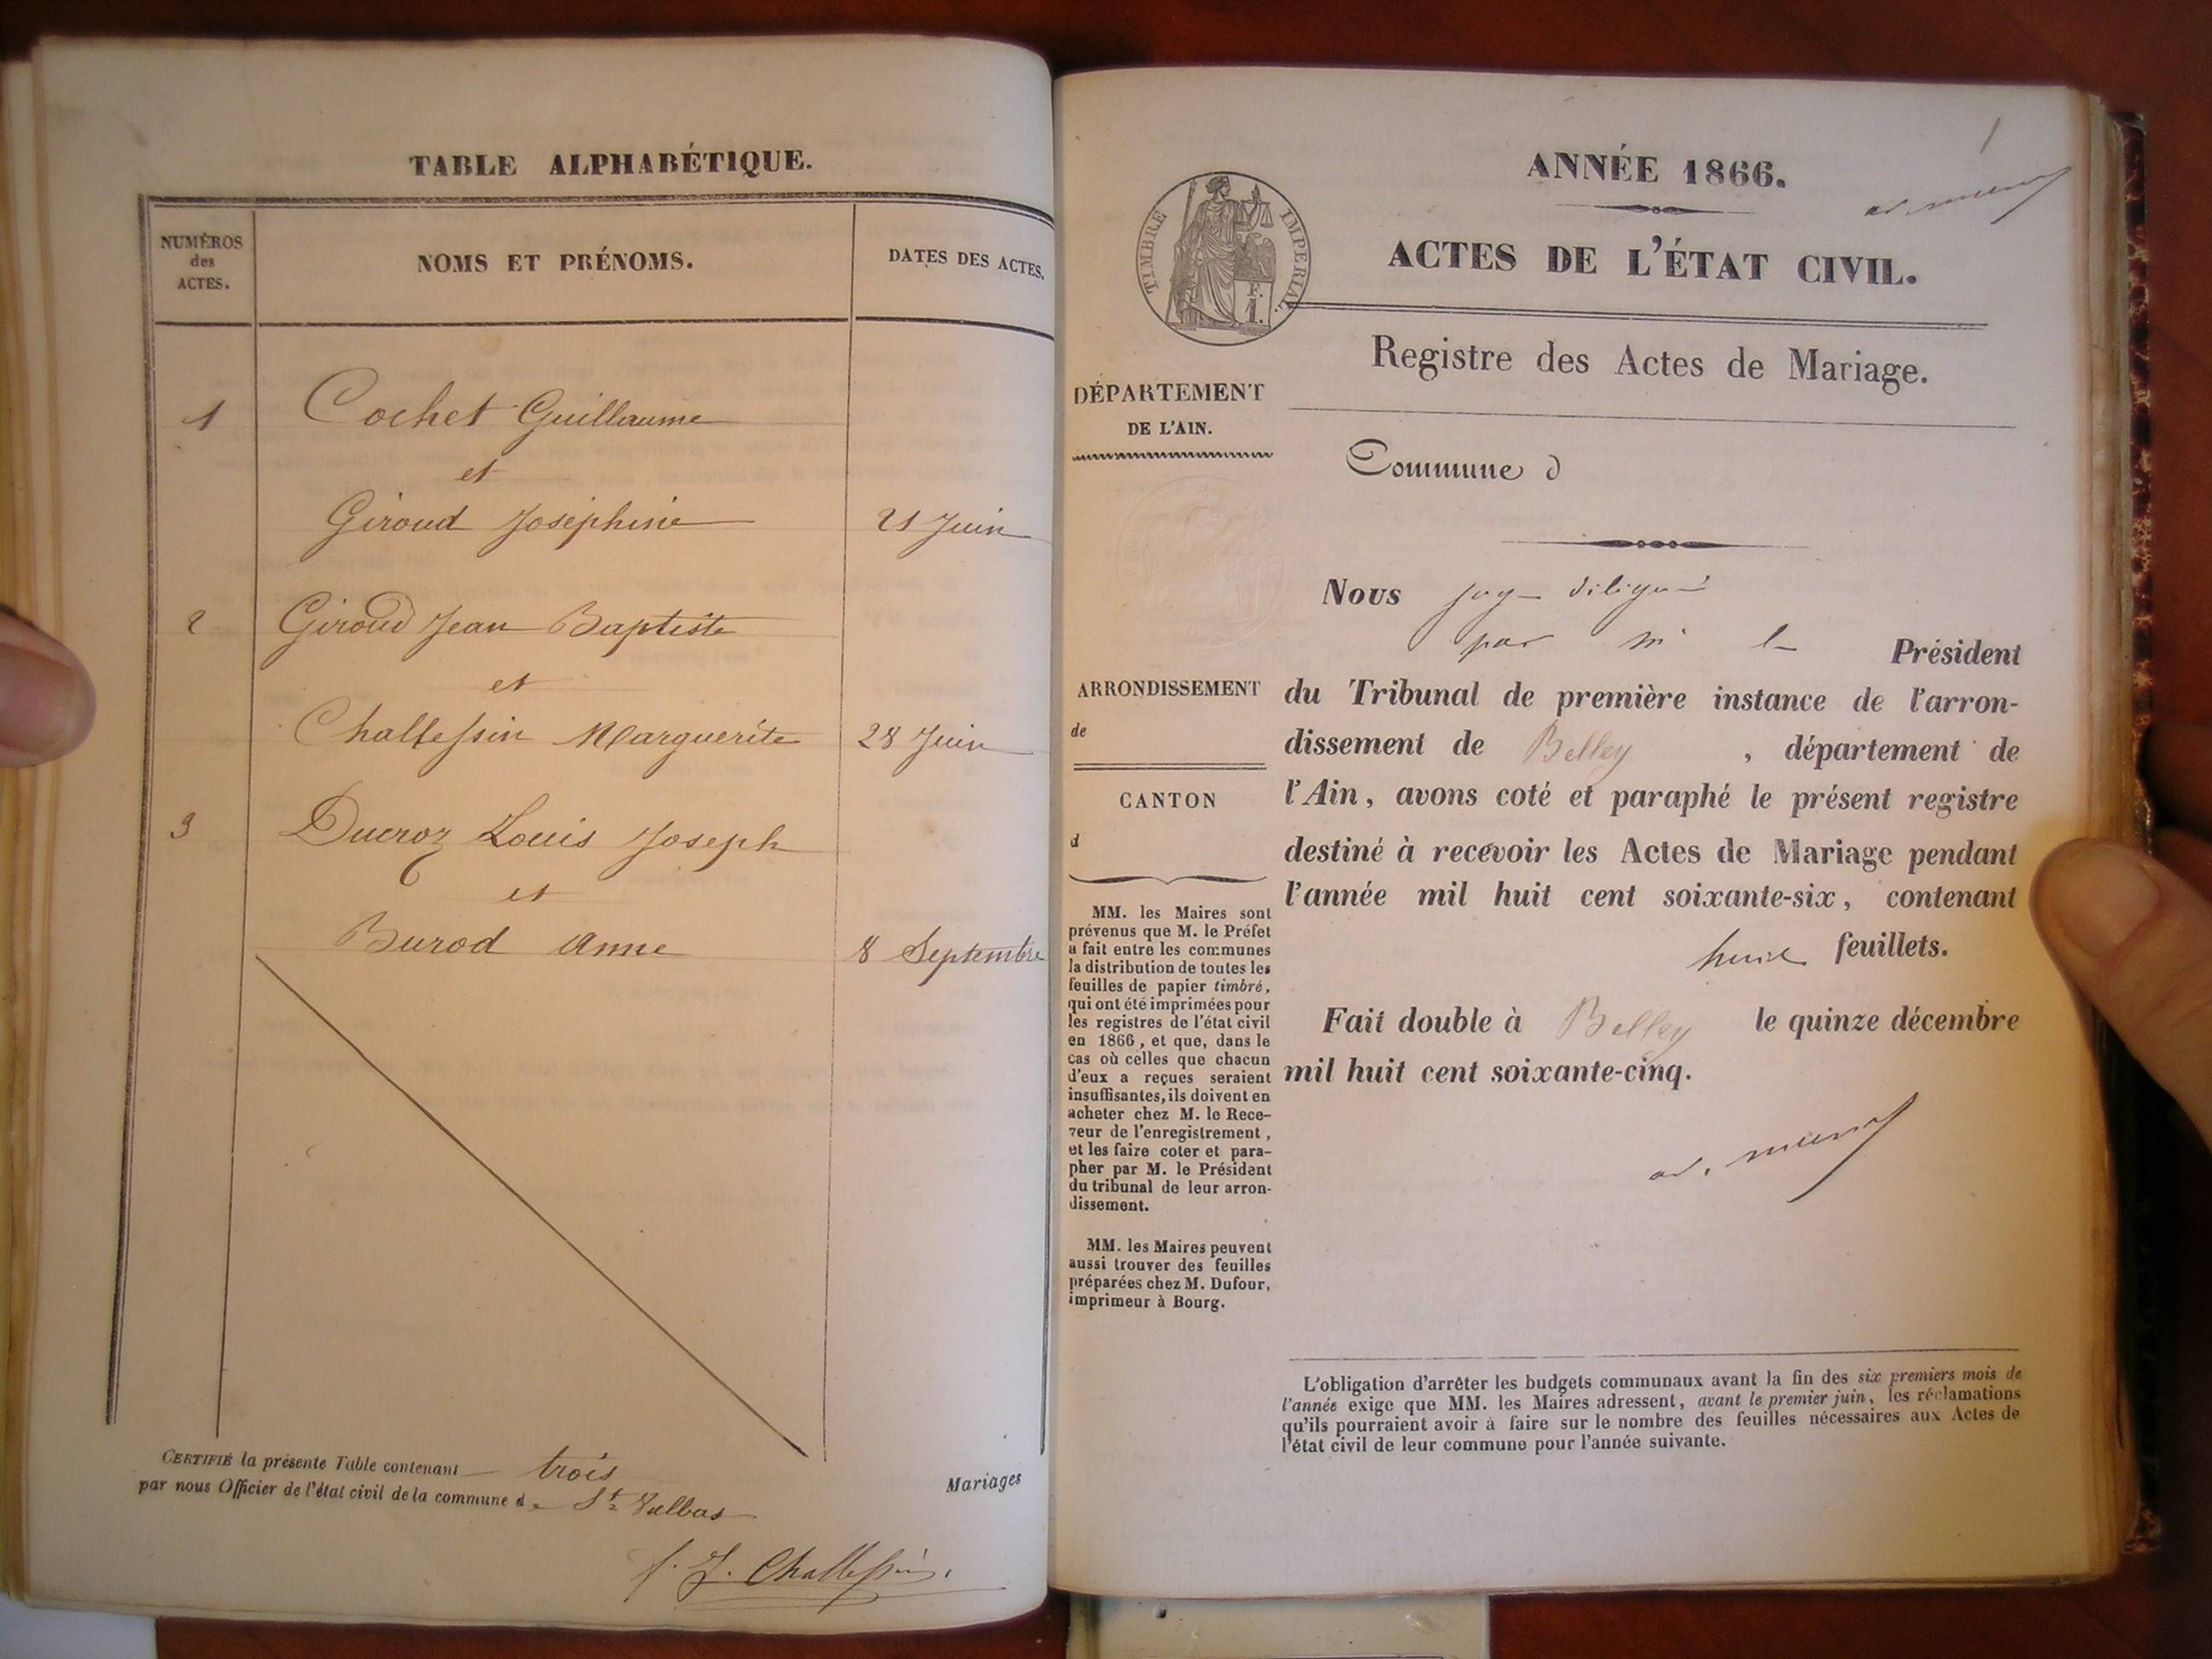 TABLE ALPHABÉTIQUE.
NUMÉROS
des
ACTES.
NOMS ET PRÉNOMS.
DATES DES ACTES.
1 Cochet Guillaume
et
Giroud Joséphine 21 Juin
2 Giroud Jean Baptiste
et
Challessin Marguerite 28 Juin
3 Ducroz Louis Joseph
et
Burod Anne 8 Septembre
CERTIFIÉ la présente Table contenant trois
par nous Officier de l'état civil de la commune de St Vulbas
Mariages
f. J. Challessin
1
ANNÉE 1866.
TIMBRE IMPERIAL.
F.
1.
ACTES DE L'ÉTAT CIVIL.
Registre des Actes de Mariage.
DÉPARTEMENT
DE L'AIN.
ARRONDISSEMENT
de
CANTON
d
MM. les Maires sont
prévenus que M. le Préfet
a fait entre les communes
la distribution de toutes les
feuilles de papier timbré,
qui ont été imprimées pour
les registres de l'état civil
en 1866, et que, dans le
cas où celles que chacun
d'eux a reçues seraient
insuffisantes, ils doivent en
acheter chez M. le Rece-
veur de l'enregistrement,
et les faire coter et para-
pher par M. le Président
du tribunal de leur arron-
dissement.
MM. les Maires peuvent
aussi trouver des feuilles
préparées chez M. Dufour,
imprimeur à Bourg.
Commune d
Nous juge délégué
par M le Président
du Tribunal de première instance de l'arron-
dissement de Belley, département de
l'Ain, avons coté et paraphé le présent registre
destiné à recevoir les Actes de Mariage pendant
l'année mil huit cent soixante-six, contenant
huit feuillets.
Fait double à Belley le quinze décembre
mil huit cent soixante-cinq.
L'obligation d'arrêter les budgets communaux avant la fin des six premiers mois de
l'année exige que MM. les Maires adressent, avant le premier juin, les réclamations
qu'ils pourraient avoir à faire sur le nombre des feuilles nécessaires aux Actes de
l'état civil de leur commune pour l'année suivante.